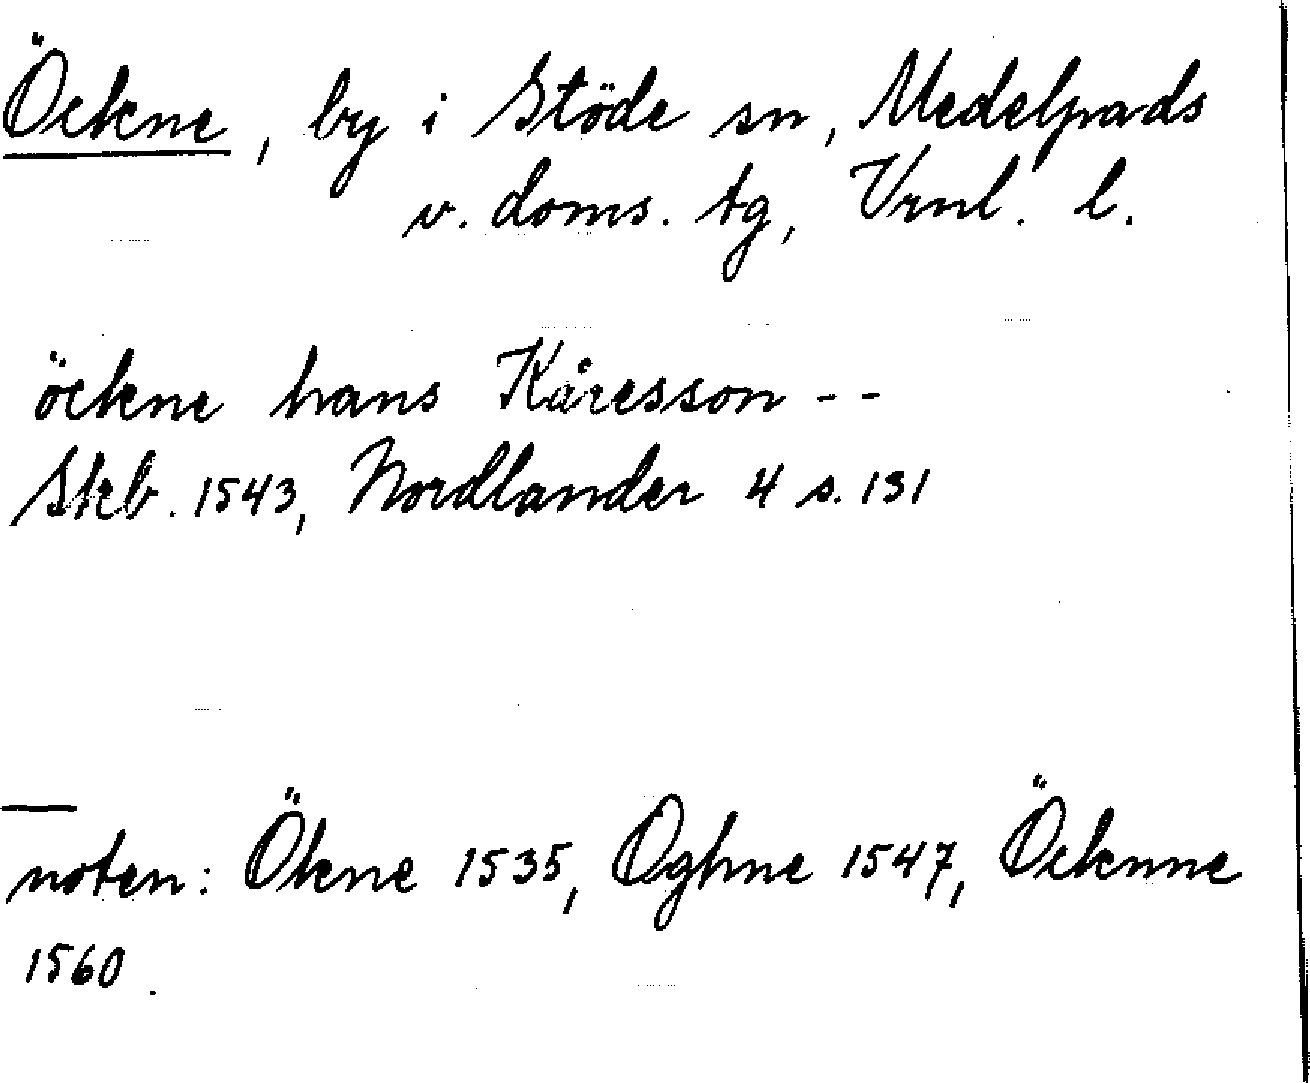 Öckne, by i Stöde sn, Medelpads
v. doms. tg, Vrnl. l.
öckne hans Kåresson - -
Skb. 1543, Nordlander 4 s. 131
noten: Ökne 1535, Oghne 1547, Öcknne
1560.